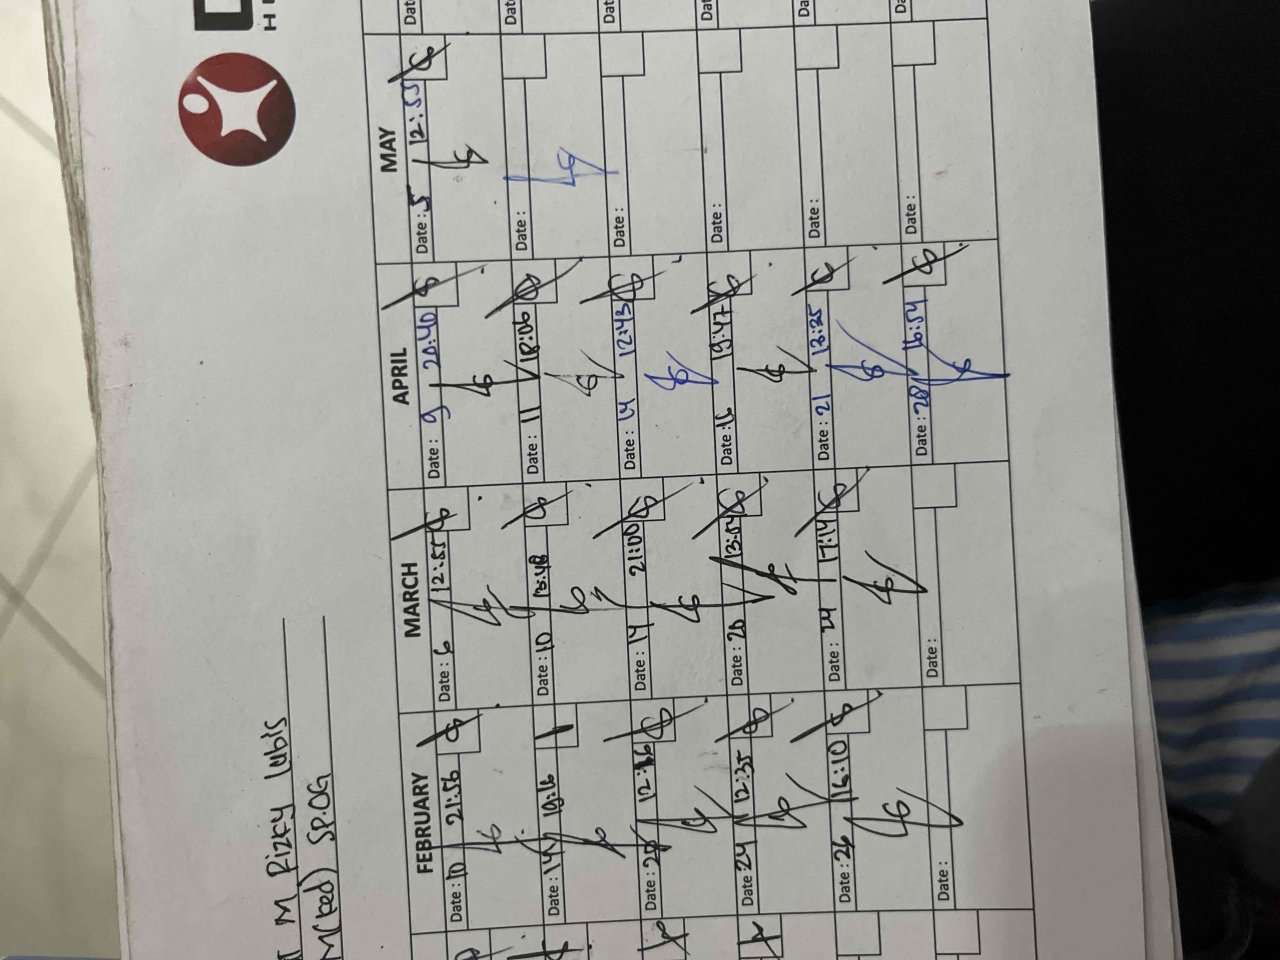 M Rizky lubis
M(ked) SP.OG
FEBRUARY MARCH APRIL MAY
Date: 10 21:56
Date: 6 12:55
Date: 9 20:40
Date: 5 12:55
Date: 14 19:16
Date: 10
Date: 11 18:06
Date:
Date: 20
Date: 14 21:00
Date: 14 12:43
Date:
Date: 24 12:35
Date: 20 13:54
Date: 16 19:47
Date:
Date: 26 16:10
Date: 24 17:14
Date: 21 13:25
Date:
Date:
Date:
Date: 28 16:54
Date: